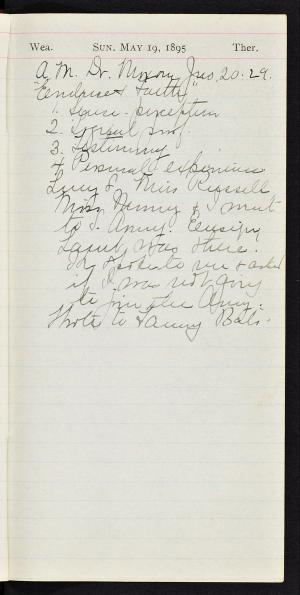 Wea. SUN. MAY 19, 1895 Ther.
A.M. Dr. Nixon, Jno. 20-29.
"Evidence & Faith"
1. Sense-perception
2. Logical proof.
3. Testimony
4 Personal experience
Lucy & Miss Russell
Miss Nanny & I went
to S. Army. Ensign
was there.
spoke to me & asked
if I was not going
to join the Army.
Wrote to Fanny Bals.